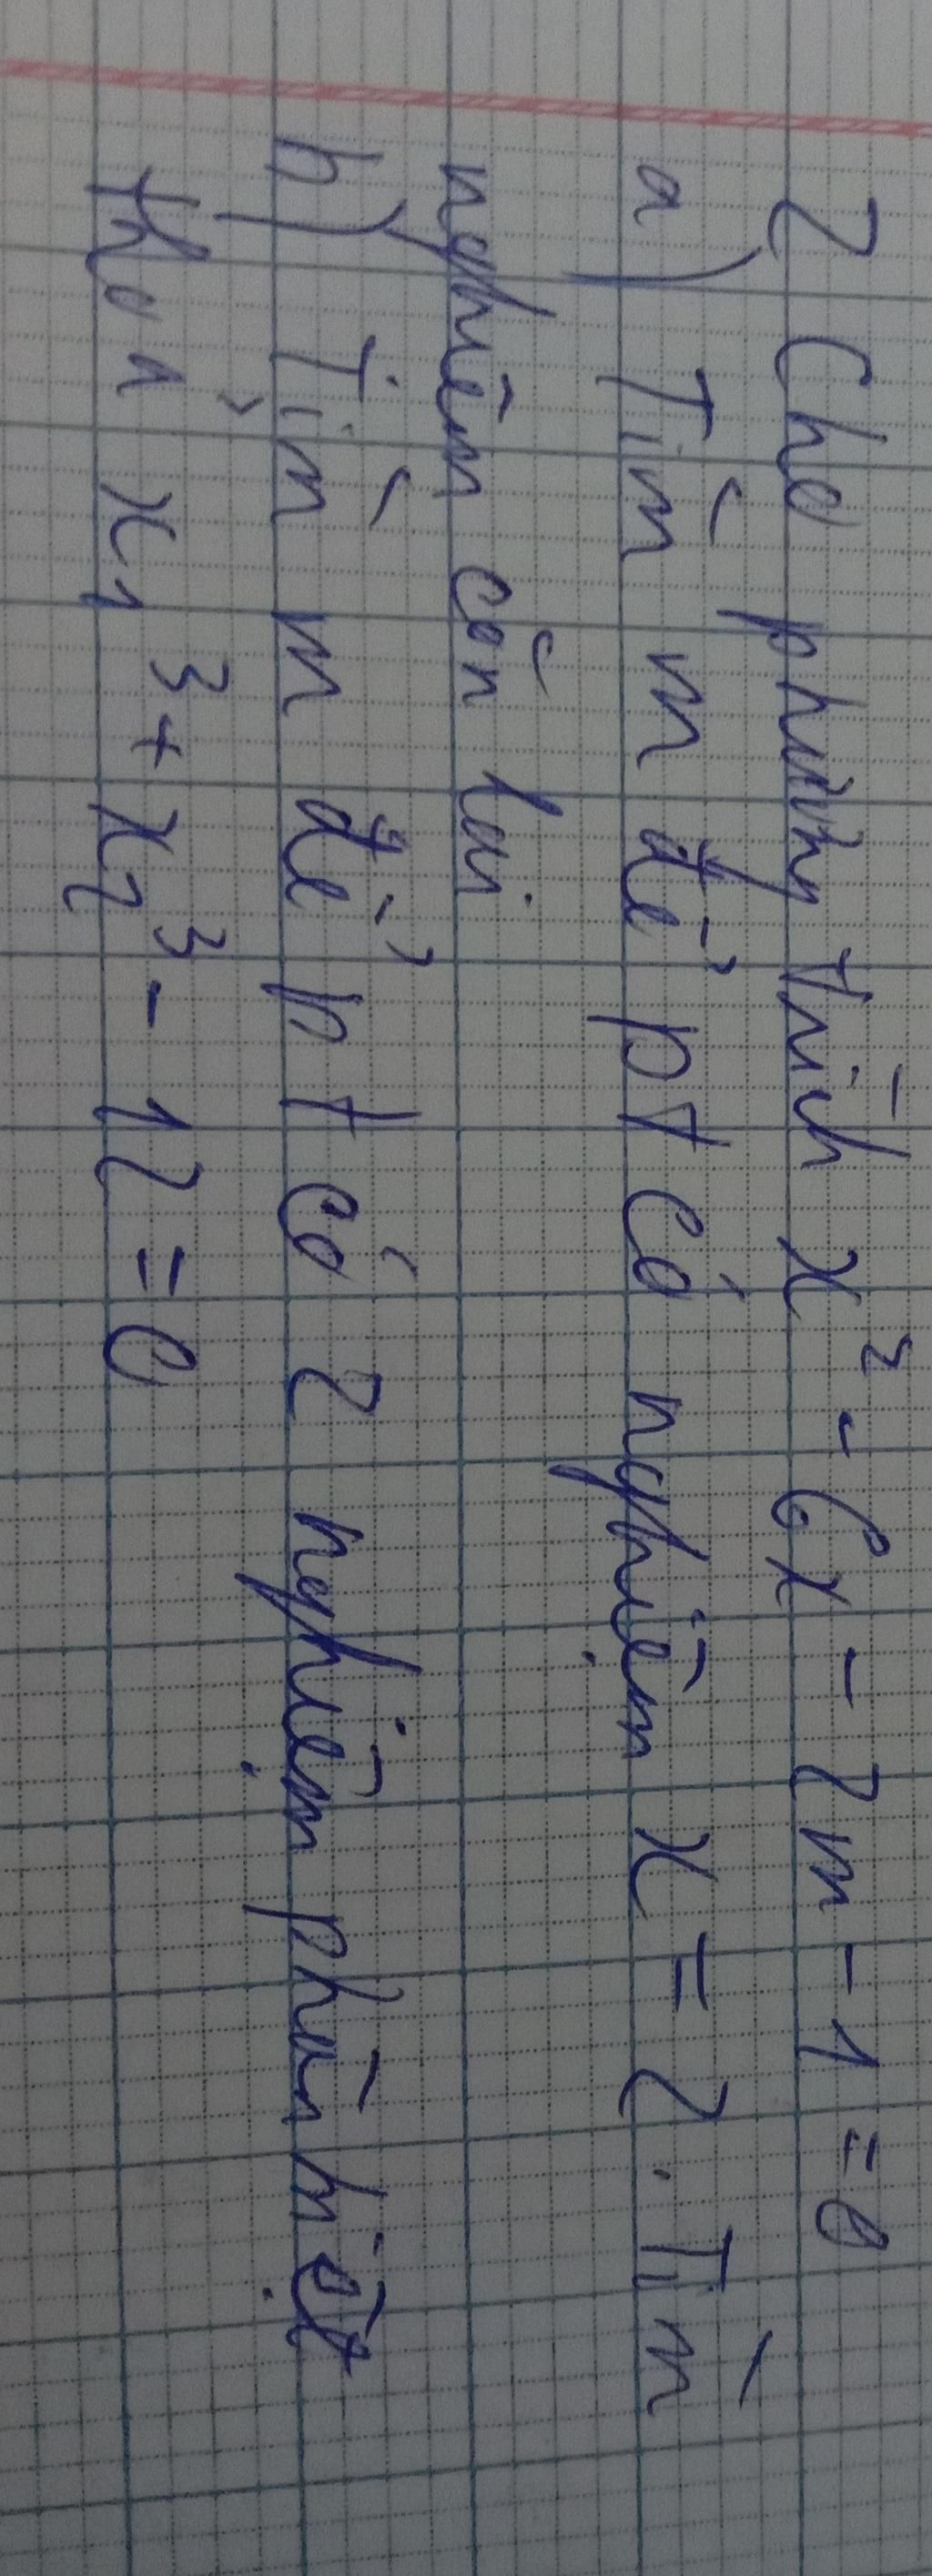 2 Cho phương trình x² - 6x - 2m - 1 = 0
a) Tìm m để pt có nghiệm x = 2. Tìm
nghiêm còn lai
b) Tìm m để pt có 2 nghiệm phân biệt
thoả x₁³ + x₂³ - 12 = 0